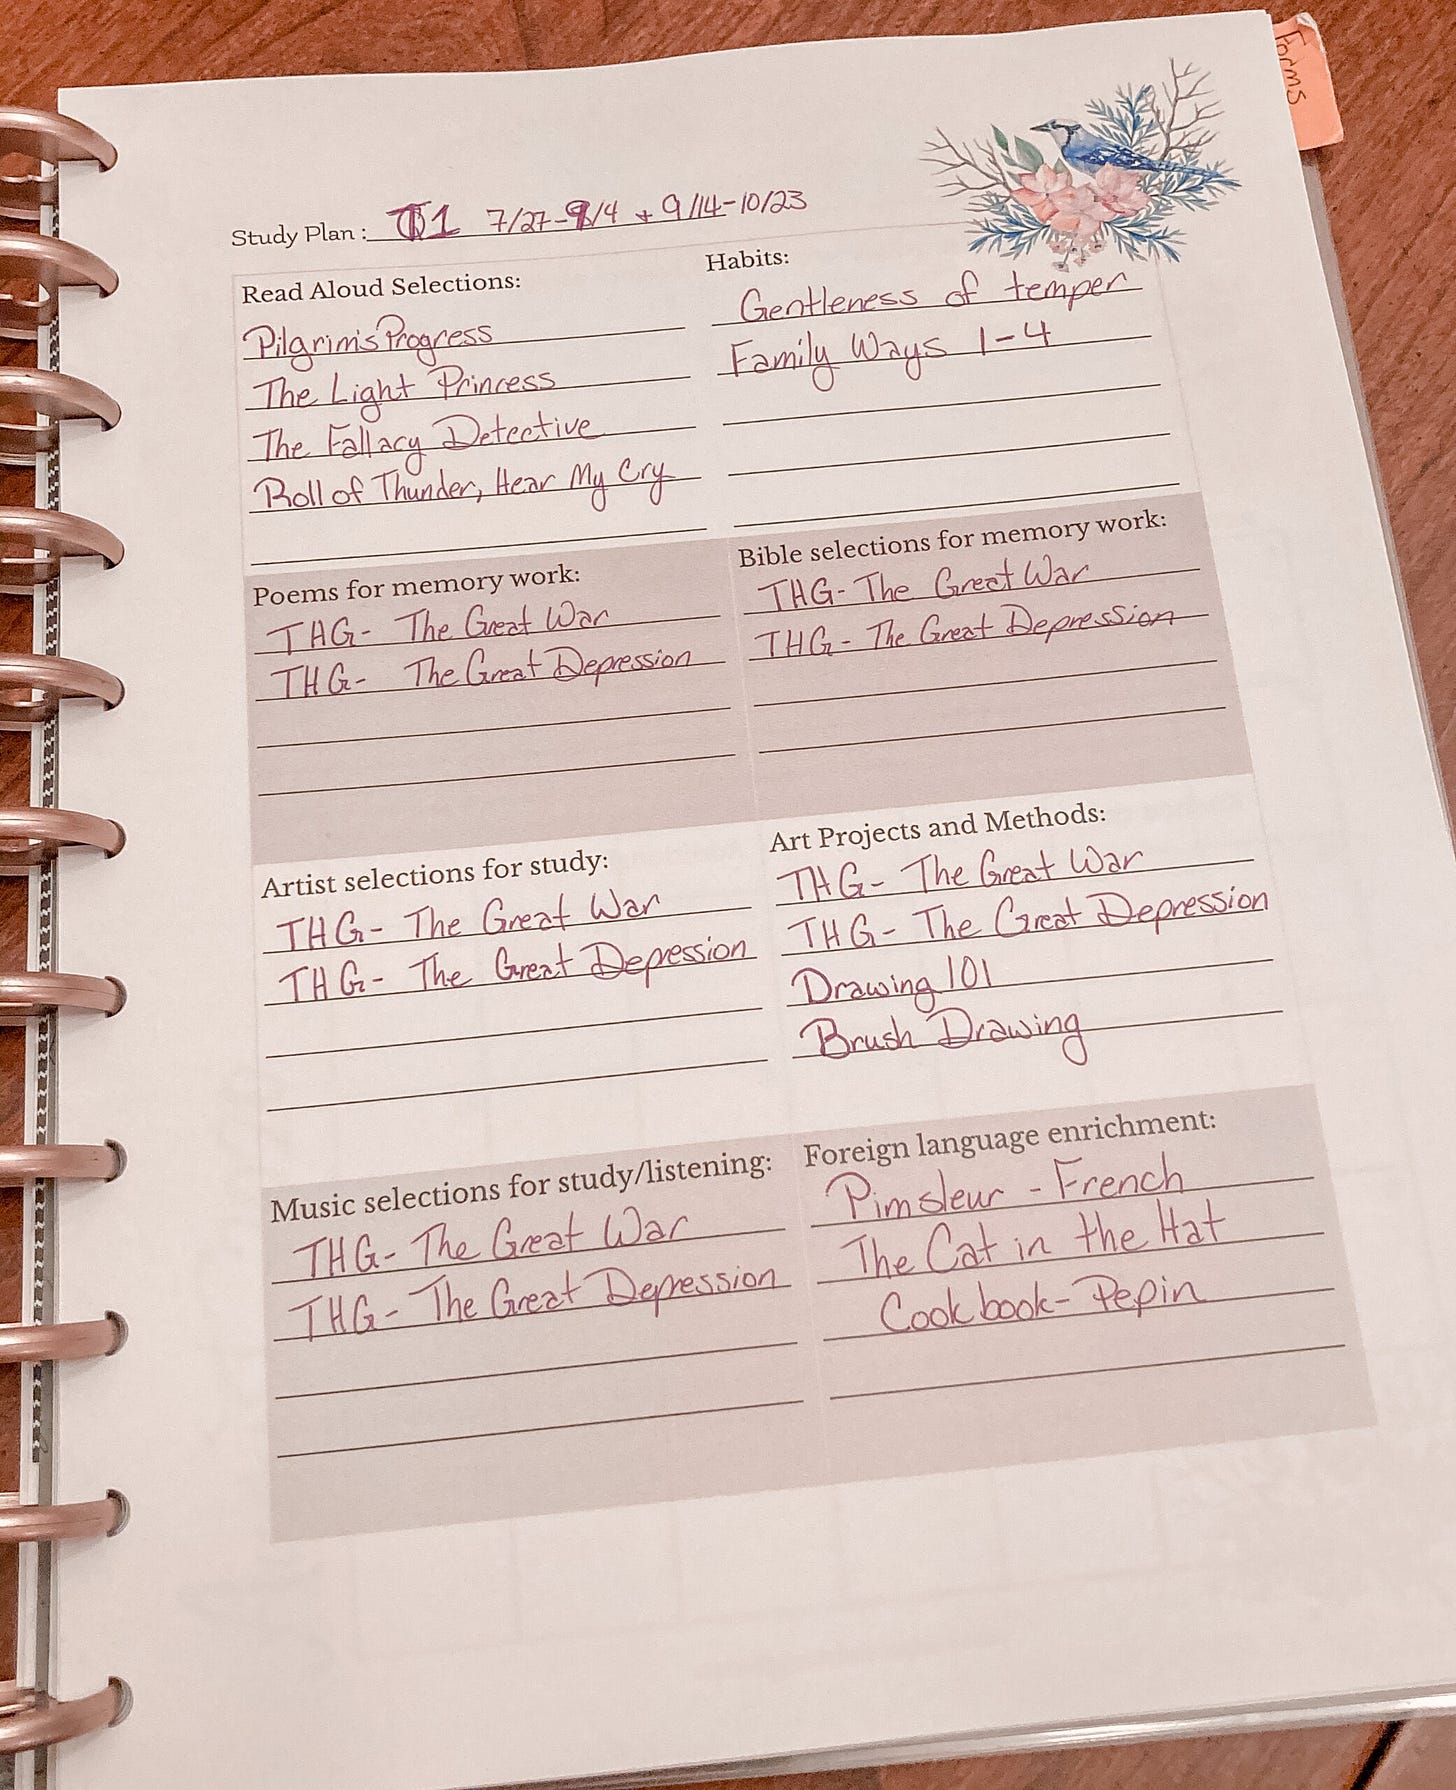 Forms
Study Plan: T1 7/27-9/4 + 9/14-10/23
Read Aloud Selections:
Pilgrim's Progress
The Light Princess
The Fallacy Detective
Roll of Thunder, Hear My Cry
Habits:
Gentleness of temper
Family Ways 1-4
Poems for memory work:
THG- The Great War
THG- The Great Depression
Bible selections for memory work:
THG- The Great War
THG- The Great Depression
Artist selections for study:
THG- The Great War
THG- The Great Depression
Art Projects and Methods:
THG- The Great War
THG- The Great Depression
Drawing 101
Brush Drawing
Music selections for study/listening:
THG- The Great War
THG- The Great Depression
Foreign language enrichment:
Pimsleur - French
The Cat in the Hat
Cookbook- Pepin